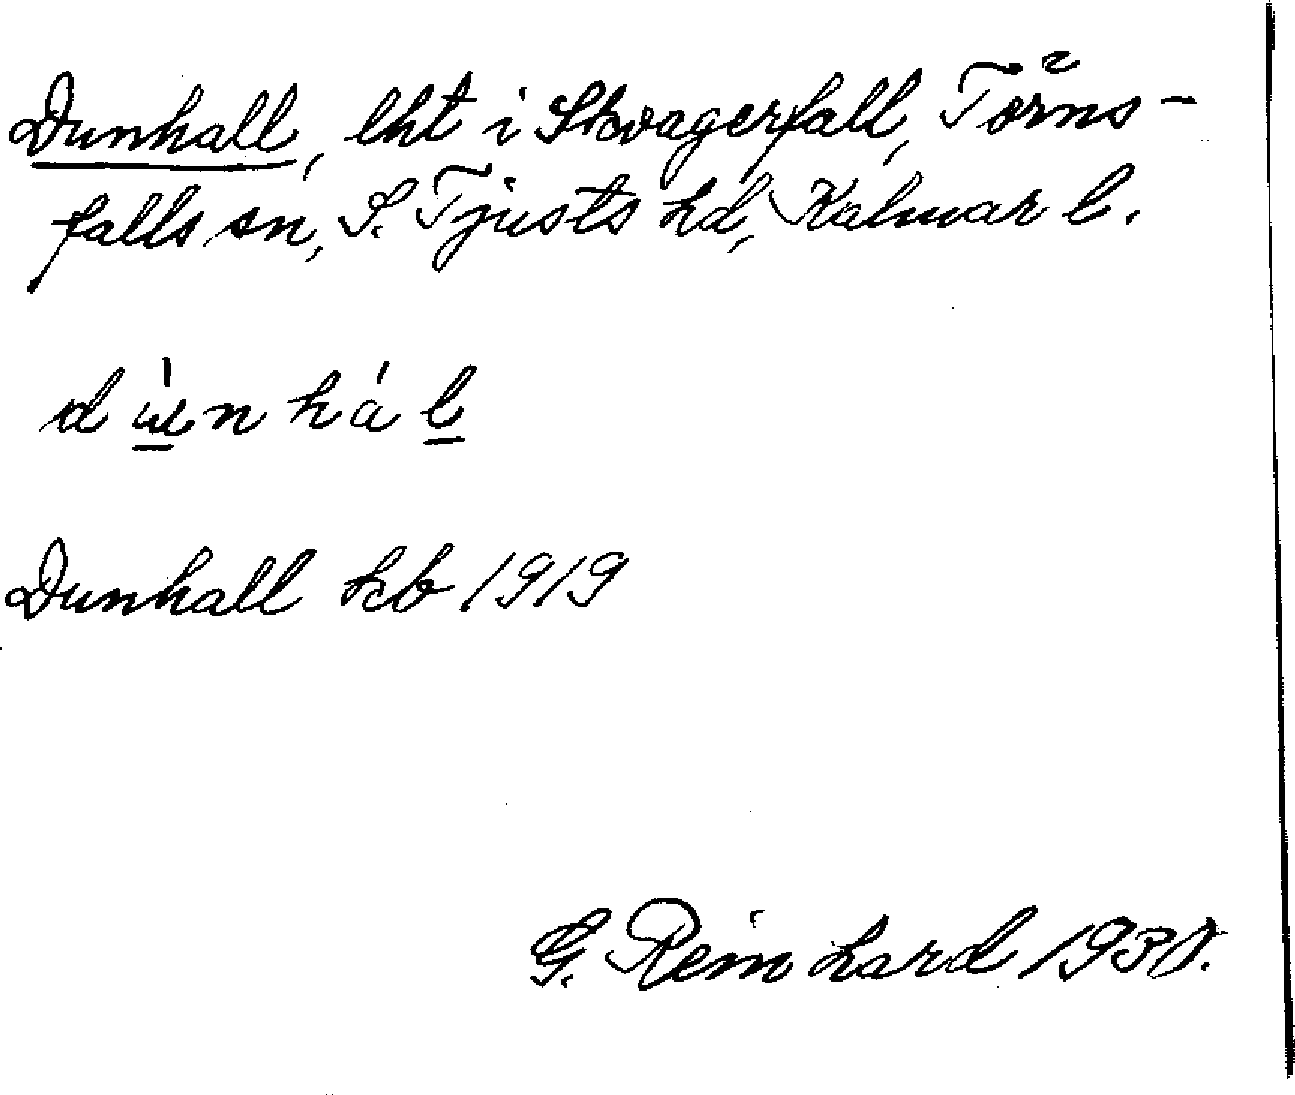 Dunhall, lht i Skvagerfall, Törns-
falls sn, S. Tjusts hd, Kalmar l.
d ù n h á l
Dunhall kb 1919
G. Reinhard